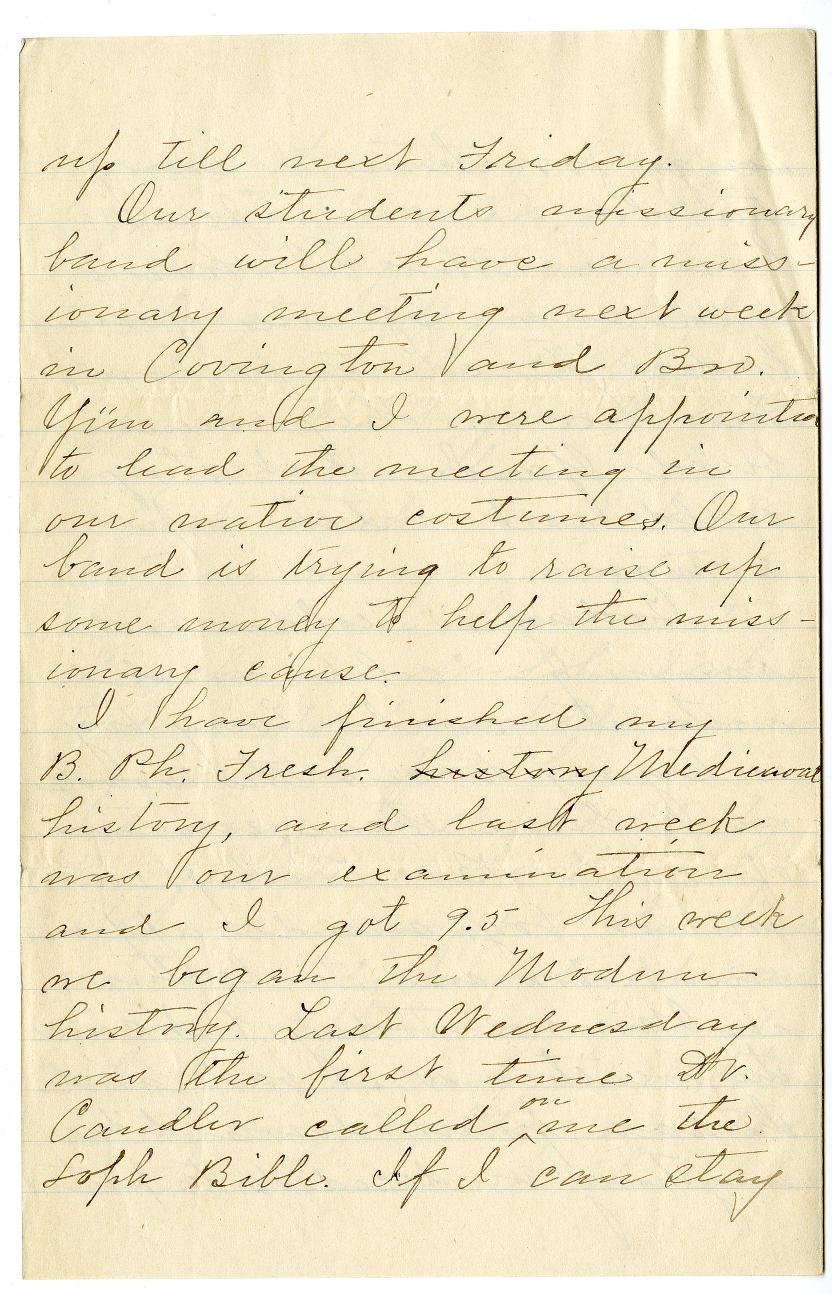 up till next Friday.
Our students missionary
band will have a miss-
ionary meeting next week
in Covington and Bro.
Yun and I were appointed
to lead the meeting in
our native costumes. Our
band is trying to raise up
some money to help the miss-
ionary cause.
I have finished my
B. Ph. Fresh. history Mediaeval
history, and last week
was our examination
and I got 9.5 This week
we began the Modern
history. Last Wednesday
was the first time Dr.
Candler called on me the
Soph Bible. If I can stay